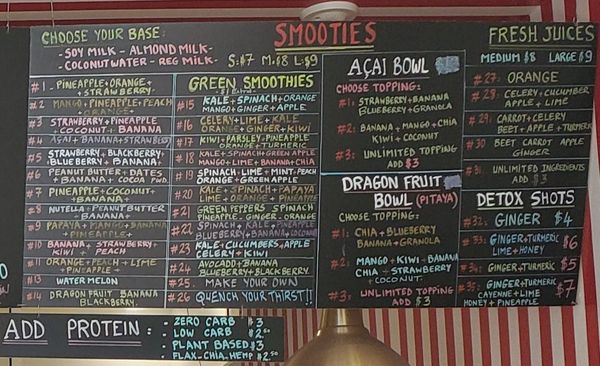 CHOOSE YOUR BASE:
-SOY MILK - ALMOND MILK-
-COCONUT WATER - REG MILK-
SMOOTIES
S:$7 M:$8 L:$9
#1 - PINEAPPLE+ORANGE+
+STRAWBERRY
#2 MANGO+PINEAPPLE+PEACH
+ORANGE+
#3 STRAWBERRY+PINEAPPLE
+COCONUT+ BANANA
#4 AÇAI+BANANA+STRAWBERRY
#5 STRAWBERRY, BLACKBERRY,
BLUEBERRY+BANANA
#6 PEANUT BUTTER+DATES
+BANANA+COCOA PWD.
#7 PINEAPPLE+COCONUT+
BANANA+
#8 NUTELLA+PEANUT BUTTER
+BANANA+
#9 PAPAYA+MANGO+BANANA
+PINEAPPLE+
#10 BANANA+STRAWBERRY+
KIWI + PEACH
#11 ORANGE+PEACH+LIME
+PINEAPPLE+
#13 WATER MELON
#14 DRAGON FRUIT BANANA
BLACKBERRY.
GREEN SMOOTHIES
#15 KALE+SPINACH+ORANGE
MANGO+GINGER+APPLE
#16 CELERY+LIME+KALE
ORANGE+GINGER+KIWI
#17 KIWI+PARSLEY+PINEAPPLE
ORANGE+TURMERIC
#18 KALE+SPINACH+GREEN APPLE
MANGO+LIME+BANANA+CHIA
#19 SPINACH+LIME+MINT+PEACH
ORANGE+GREEN APPLE
#20 KALE+SPINACH+PAPAYA
LIME+ORANGE+PINEAPPLE
#21 GREEN PEPPERS SPINACH
PINEAPPLE-GINGER-ORANGE
#22 SPINACH+KALE+PINEAPPLE
BLUEBERRY+BANANA+COCONUT
#23 KALE+CUCUMBERS,APPLE
CELERY+KIWI
#24 AVOCADO+BANANA
BLUEBERRY+BLACKBERRY.
#25 MAKE YOUR OWN
#26 QUENCH YOUR THIRST!!
AÇAI BOWL
CHOOSE TOPPING:
#1: STRAWBERRY+BANANA
BLUEBERRY+GRANOLA
#2: BANANA+MANGO+CHIA
KIWI+COCONUT
#3: UNLIMITED TOPPING
ADD $3
DRAGON FRUIT
BOWL (PITAYA)
CHOOSE TOPPING:
#1: CHIA+BLUEBERRY
BANANA+GRANOLA
#2: MANGO+KIWI+BANANA
CHIA+STRAWBERRY
+COCONUT
#3: UNLIMITED TOPPING
ADD $3
FRESH JUICES
MEDIUM $8 LARGE $9
#27: ORANGE
#28: CELERY+CUCUMBER
APPLE+LIME
#29: CARROT+CELERY
BEET+APPLE+TURMERIC
#30 BEET CARROT APPLE
GINGER
#31: UNLIMITED INGREDIENTS
ADD $3
DETOX SHOTS
#32: GINGER $4
#33: GINGER+TURMERIC
LIME+HONEY $6
#34: GINGER+TURMERIC $5
#35: GINGER+TURMERIC
CAYENNE+LIME
HONEY+PINEAPPLE $7
ADD PROTEIN:
- ZERO CARB $3
- LOW CARB $2.50
- PLANT BASED $3
- FLAX-CHIA.HEMP $2.50